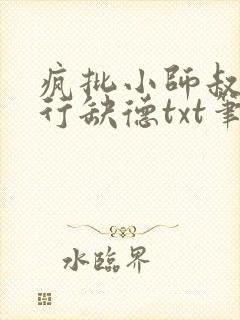 疯批小師叔
行缺德txt筆
水臨界